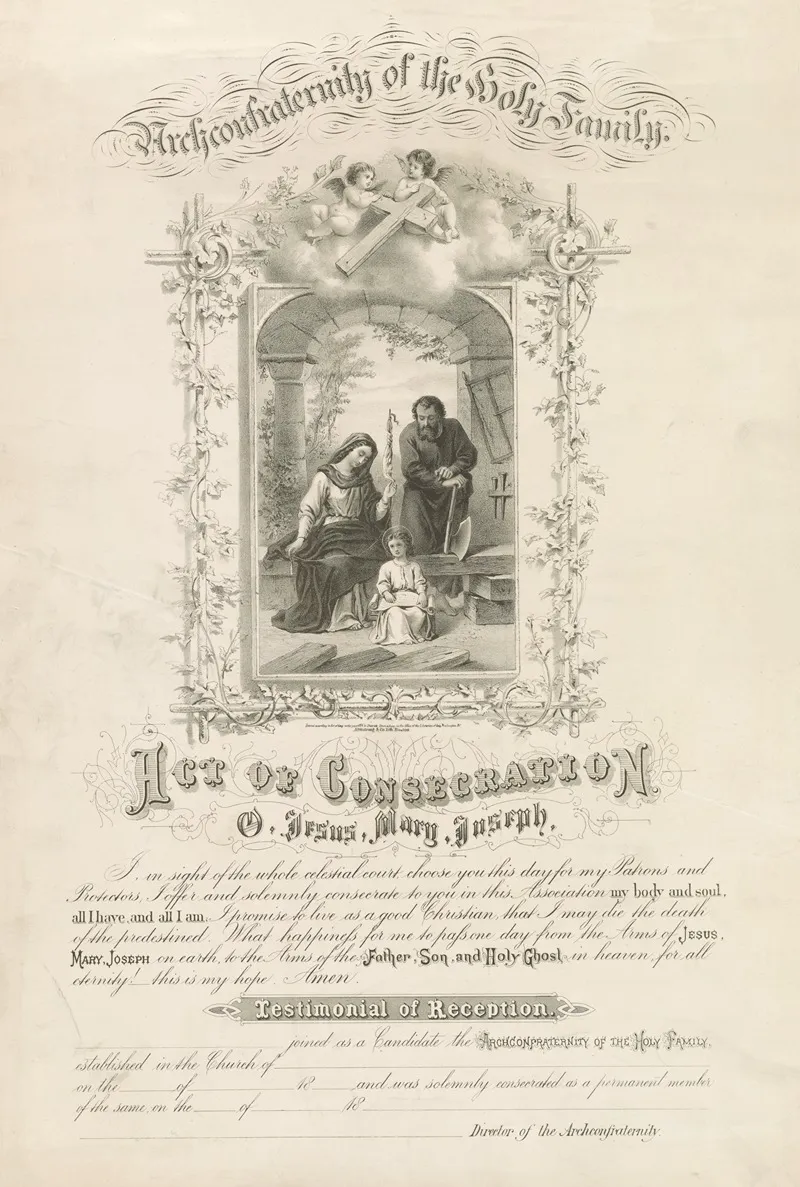 Archconfraternity of the Holy Family.
Act of Consecration
O. Jesus, Mary, Joseph,
I, in sight of the whole celestial court choose you this day for my Patrons and
Protectors, I offer and solemnly consecrate to you in this Association my body and soul,
all I have, and all I am. I promise to live as a good Christian, that I may die the death
of the predestined. What happiness for me to pass one day from the Arms of Jesus,
Mary, Joseph on earth, to the Arms of the Father, Son, and Holy Ghost in heaven, for all
eternity! this is my hope. Amen.
Testimonial of Reception.
joined as a Candidate the Archconfraternity of the Holy Family,
established in the Church of
on the of 18 and was solemnly consecrated as a permanent member
of the same, on the of 18
Director of the Archconfraternity.